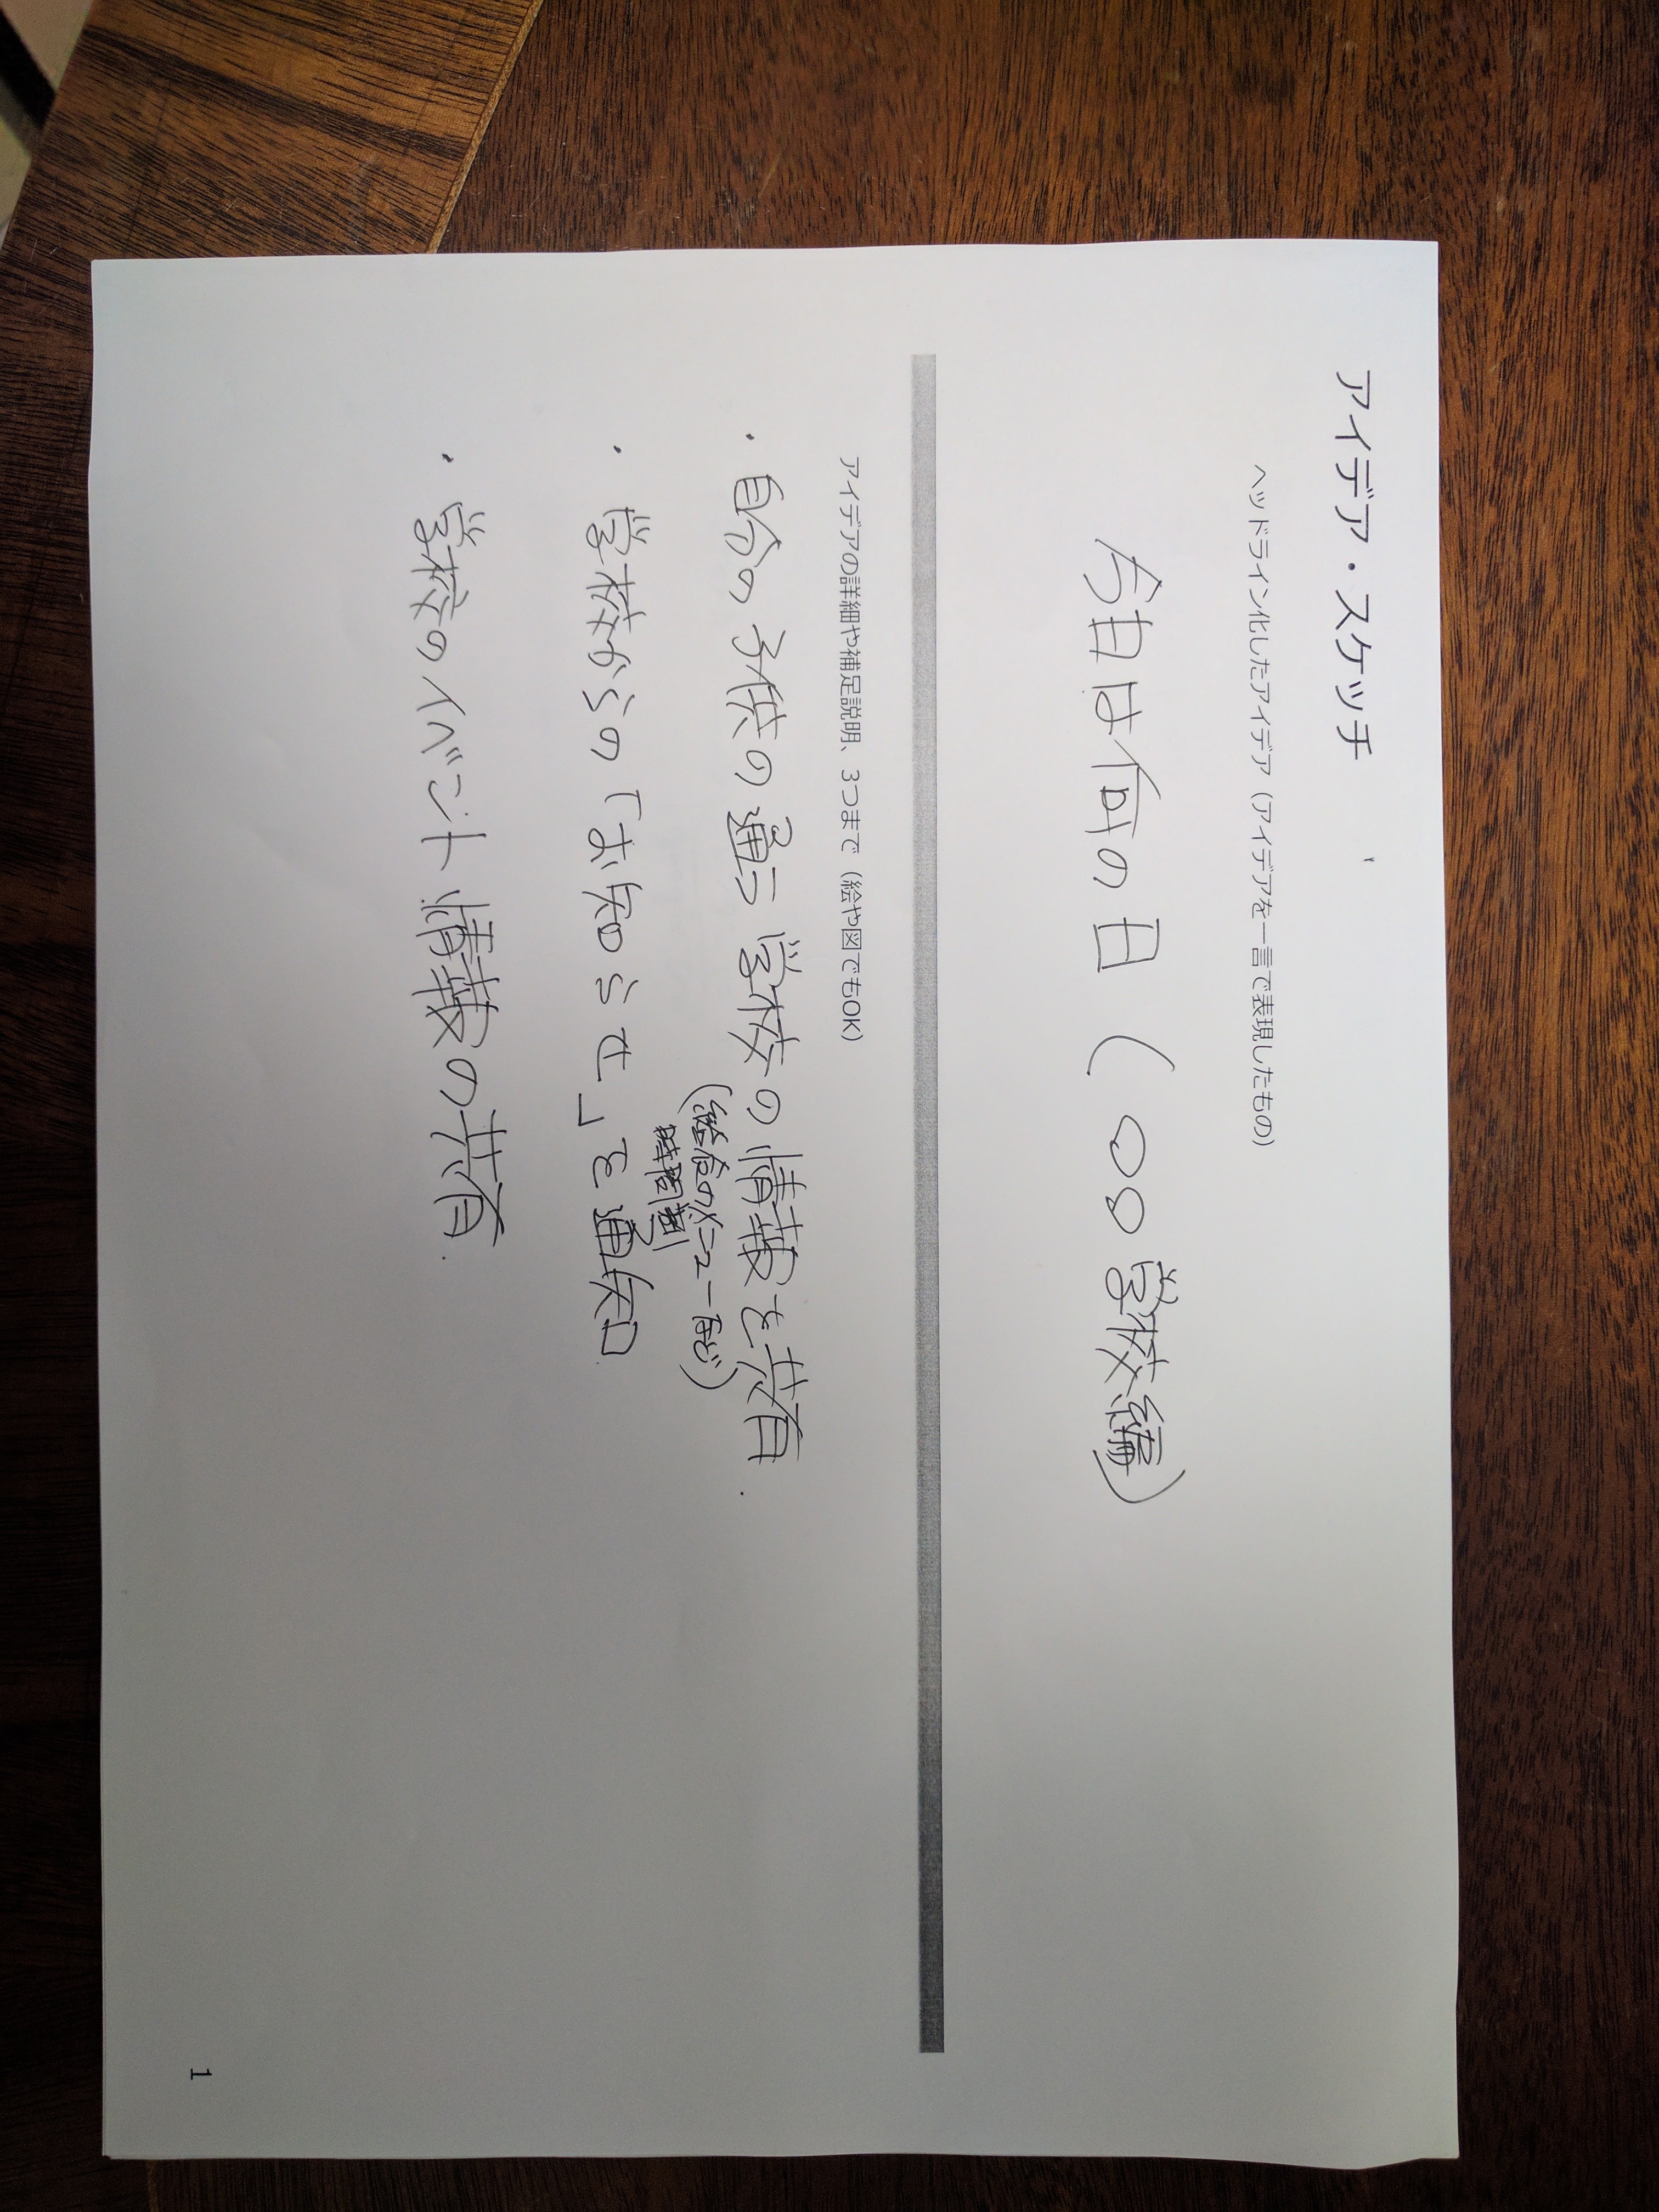 アイデア・スケッチ
ヘッドライン化したアイデア（アイデアを一言で表現したもの）
今日は何の日（○○学校編）
アイデアの詳細や補足説明、3つまで（絵や図でもOK）
・自分の子供の通う学校の情報を共有.
（給食のメニュー一覧など）
時間割
・学校からの「お知らせ」を通知
・学校のイベント情報の共有.
1